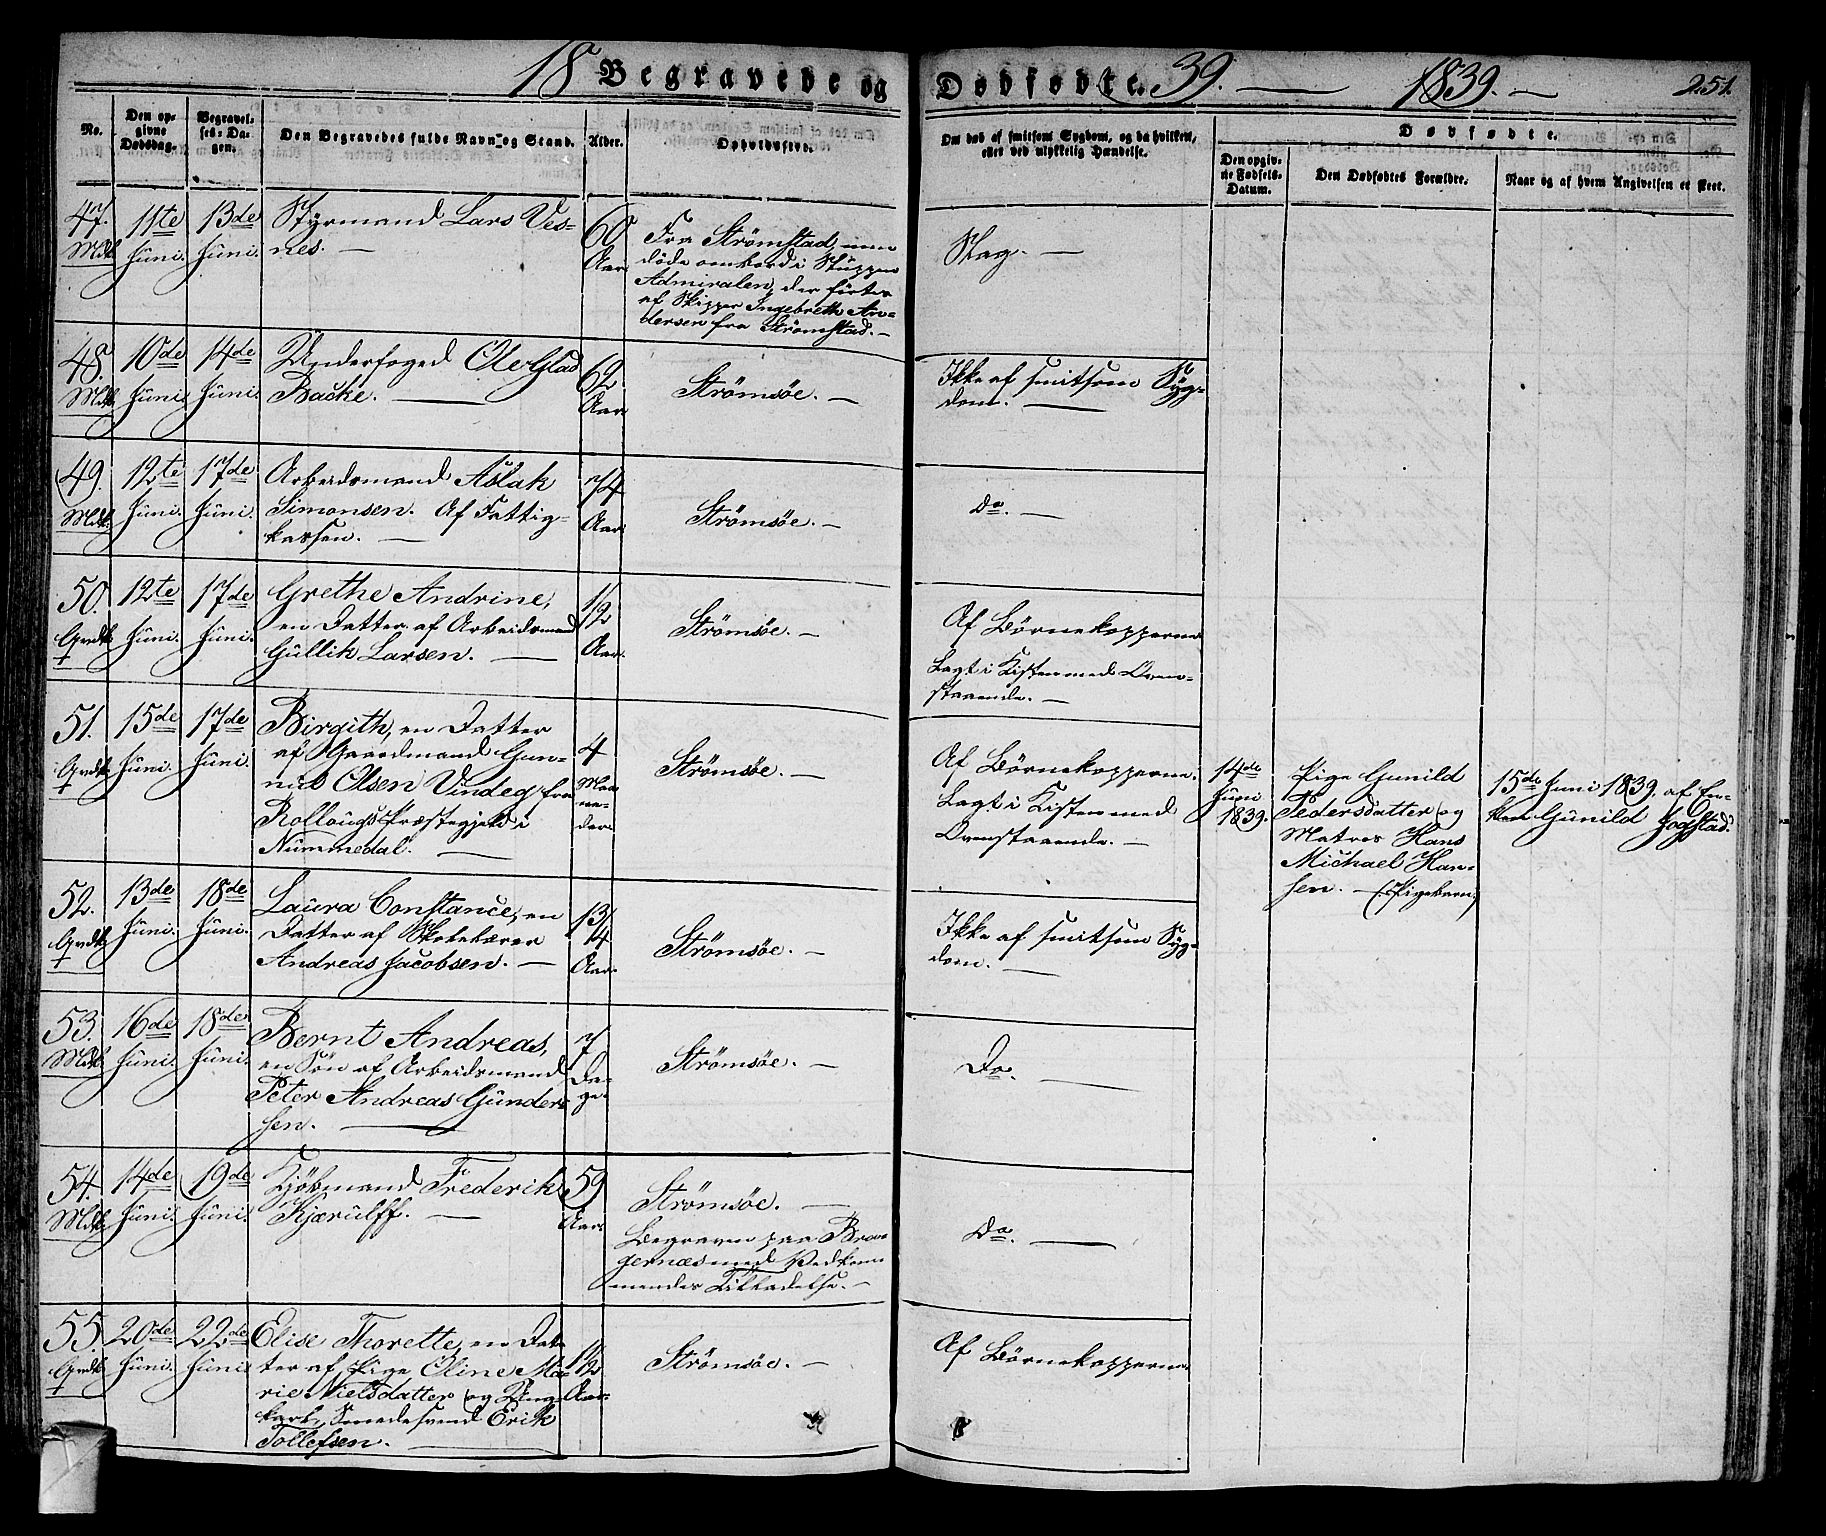 18 Begravede og Dødfødte. 39. 1839. 251.
No.
Den opgivne Dødsdag.
Begravelses-Dagen.
Den Begravedes fulde Navn og Stand.
Alder.
Opholdssted.
Om død af smitsom Sygdom, og da hvilken, eller ved ulykkelig Hændelse.
Dødfødte.
Den opgivne Fødsels-Datum.
Den Dødfødtes Forældre.
Naar og af hvem Angivelsen er skeet.
47.
Mdk.
11te
Juni.
13de
Juni.
Styrmand Lars Ves-
nes. —
60
Aar.
Fra Strømstad, men
døde ombord i Sluppen
Admiralen, der føres
af Skipper Ingebreth An-
dersen fra Strømstad. —
Slag. —
48.
Mdk.
10de
Juni.
14de
Juni.
Underfoged Ole Glad
Backe. —
62
Aar.
Strømsøe. —
Ikke af smitsom Syg-
dom. —
49.
Mdk.
12te
Juni.
17de
Juni.
Arbeidsmand Aslak
Simonsen. Af Fattig-
kassen. —
74
Aar.
Strømsøe. —
Do. —
50.
Qvdk.
†
12te
Juni.
17de
Juni.
Grethe Andrine,
en Datter af Arbeidsmand
Gullik Larsen. —
1/2
Aar.
Strømsøe. —
Af Børnekopperne
Lagt i Kisten med Oven-
staaende. —
51.
Qvdk.
†
15de
Juni.
17de
Juni.
Birgith, en Datter
af Gaardmand Gun-
nul Olsen Vindeg fra
Rollougs Præstegjeld i
Nummedal. —
4
Maa-
ne-
der.
Strømsøe. —
Af Børnekopperne.
Lagt i Kisten med
Ovenstaaende. —
14de
Juni
1839.
Pige Gunild
Pedersdatter og
Matros Hans
Michael Han-
sen. — (Pigebarn)
15de Juni 1839. af En-
ken Gunild Godstad.
52.
Qvdk.
†
13de
Juni.
18de
Juni.
Laura Constance, en
Datter af Skolelærer
Andreas Jacobsen. —
13/14
Aar.
Strømsøe. —
Ikke af smitsom Syg-
dom. —
53.
Mdk.
16de
Juni.
18de
Juni.
Bernt Andreas,
en Søn af Arbeidsmand
Peter Andreas Gunder-
sen. —
7
Da-
ge.
Strømsøe. —
Do. —
54.
Mdk.
14de
Juni.
19de
Juni.
Kjøbmand Frederik
Kjærulff. —
59
Aar.
Strømsøe. —
Begraven paa Bra-
gernæs med Vedkom-
mendes Tilladelse. —
Do. —
55.
Qvdk.
†
20de
Juni.
22de
Juni.
Elise Thorette, en Dat-
ter af Pige Oline Ma-
rie Nielsdatter og Ung-
karl, Smedesvend Erik
Tollefsen. —
1/2
Aar.
Strømsøe. —
Af Børnekopperne.